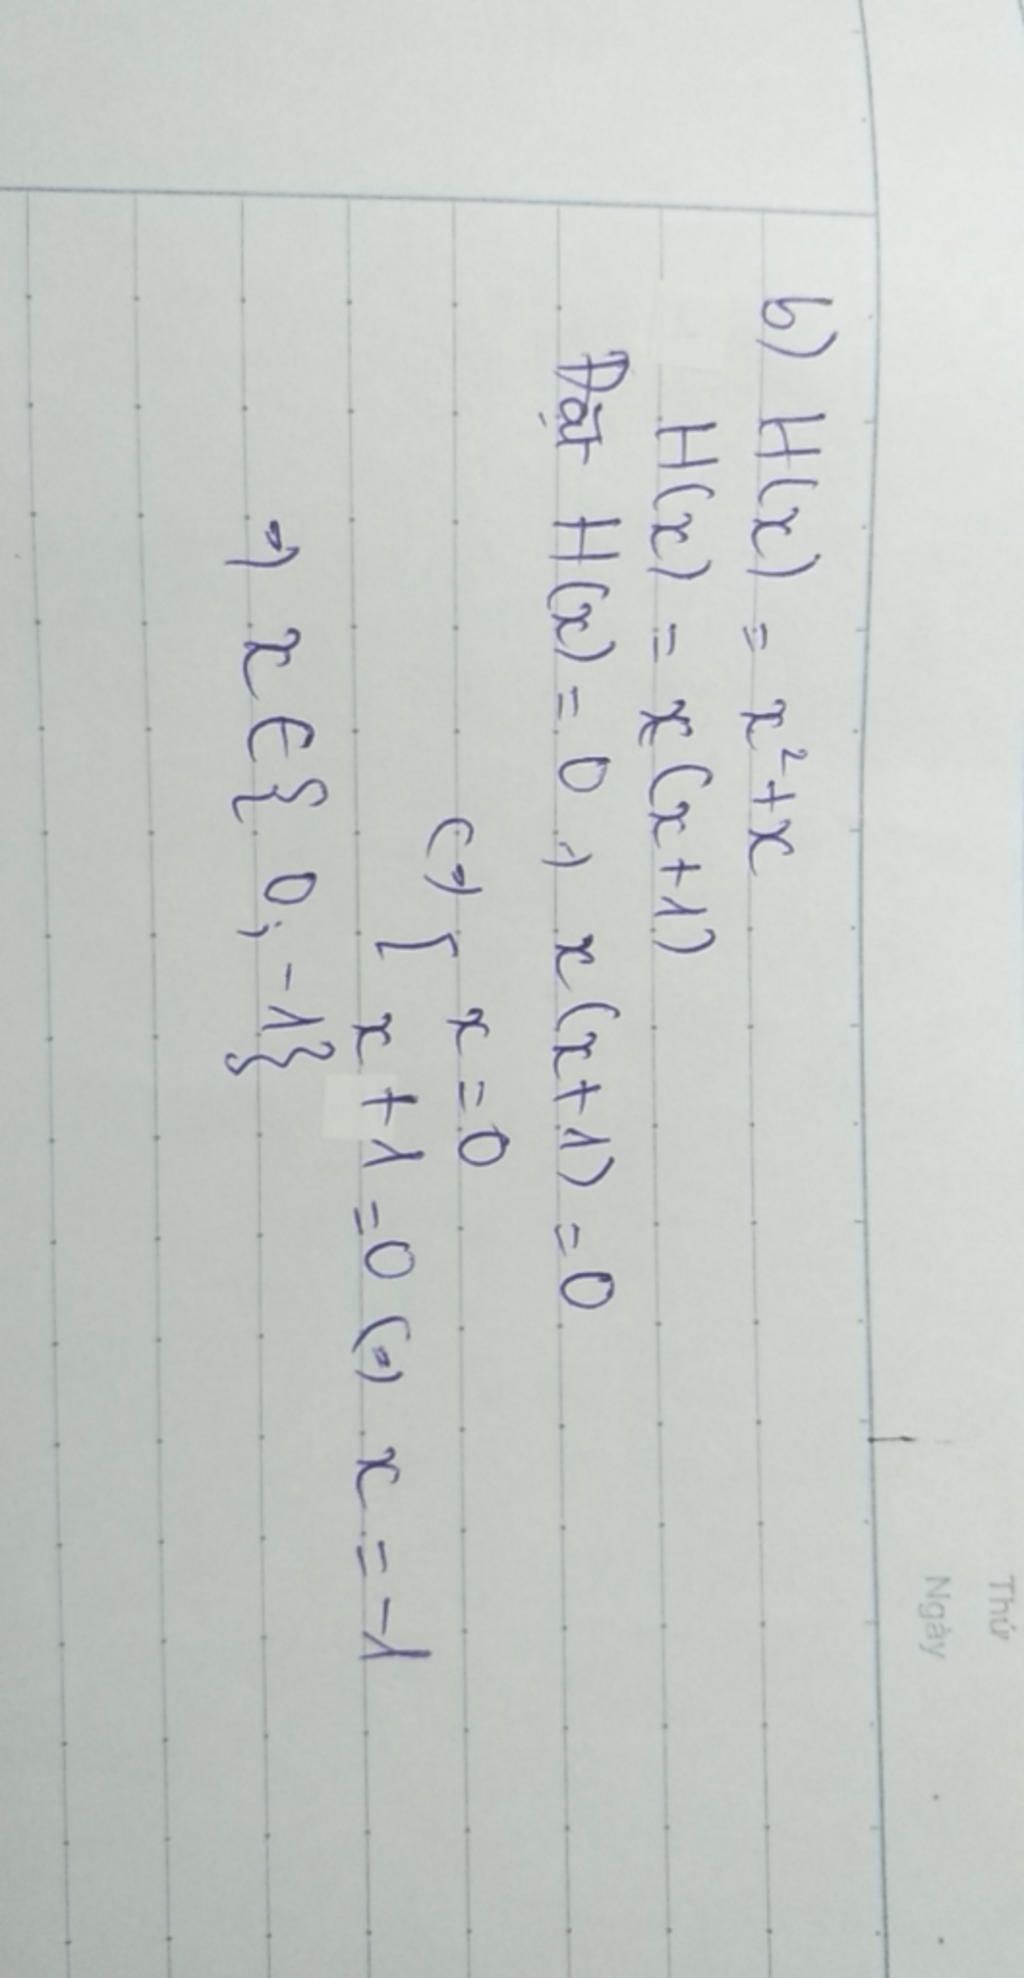 Thứ
Ngày
b) H(x) = x²+x
H(x) = x(x+1)
Đặt H(x) = 0 ⇒ x(x+1) = 0
⇔ [ x = 0
x + 1 = 0 ⇔ x = -1
⇒ x ∈ { 0; -1}